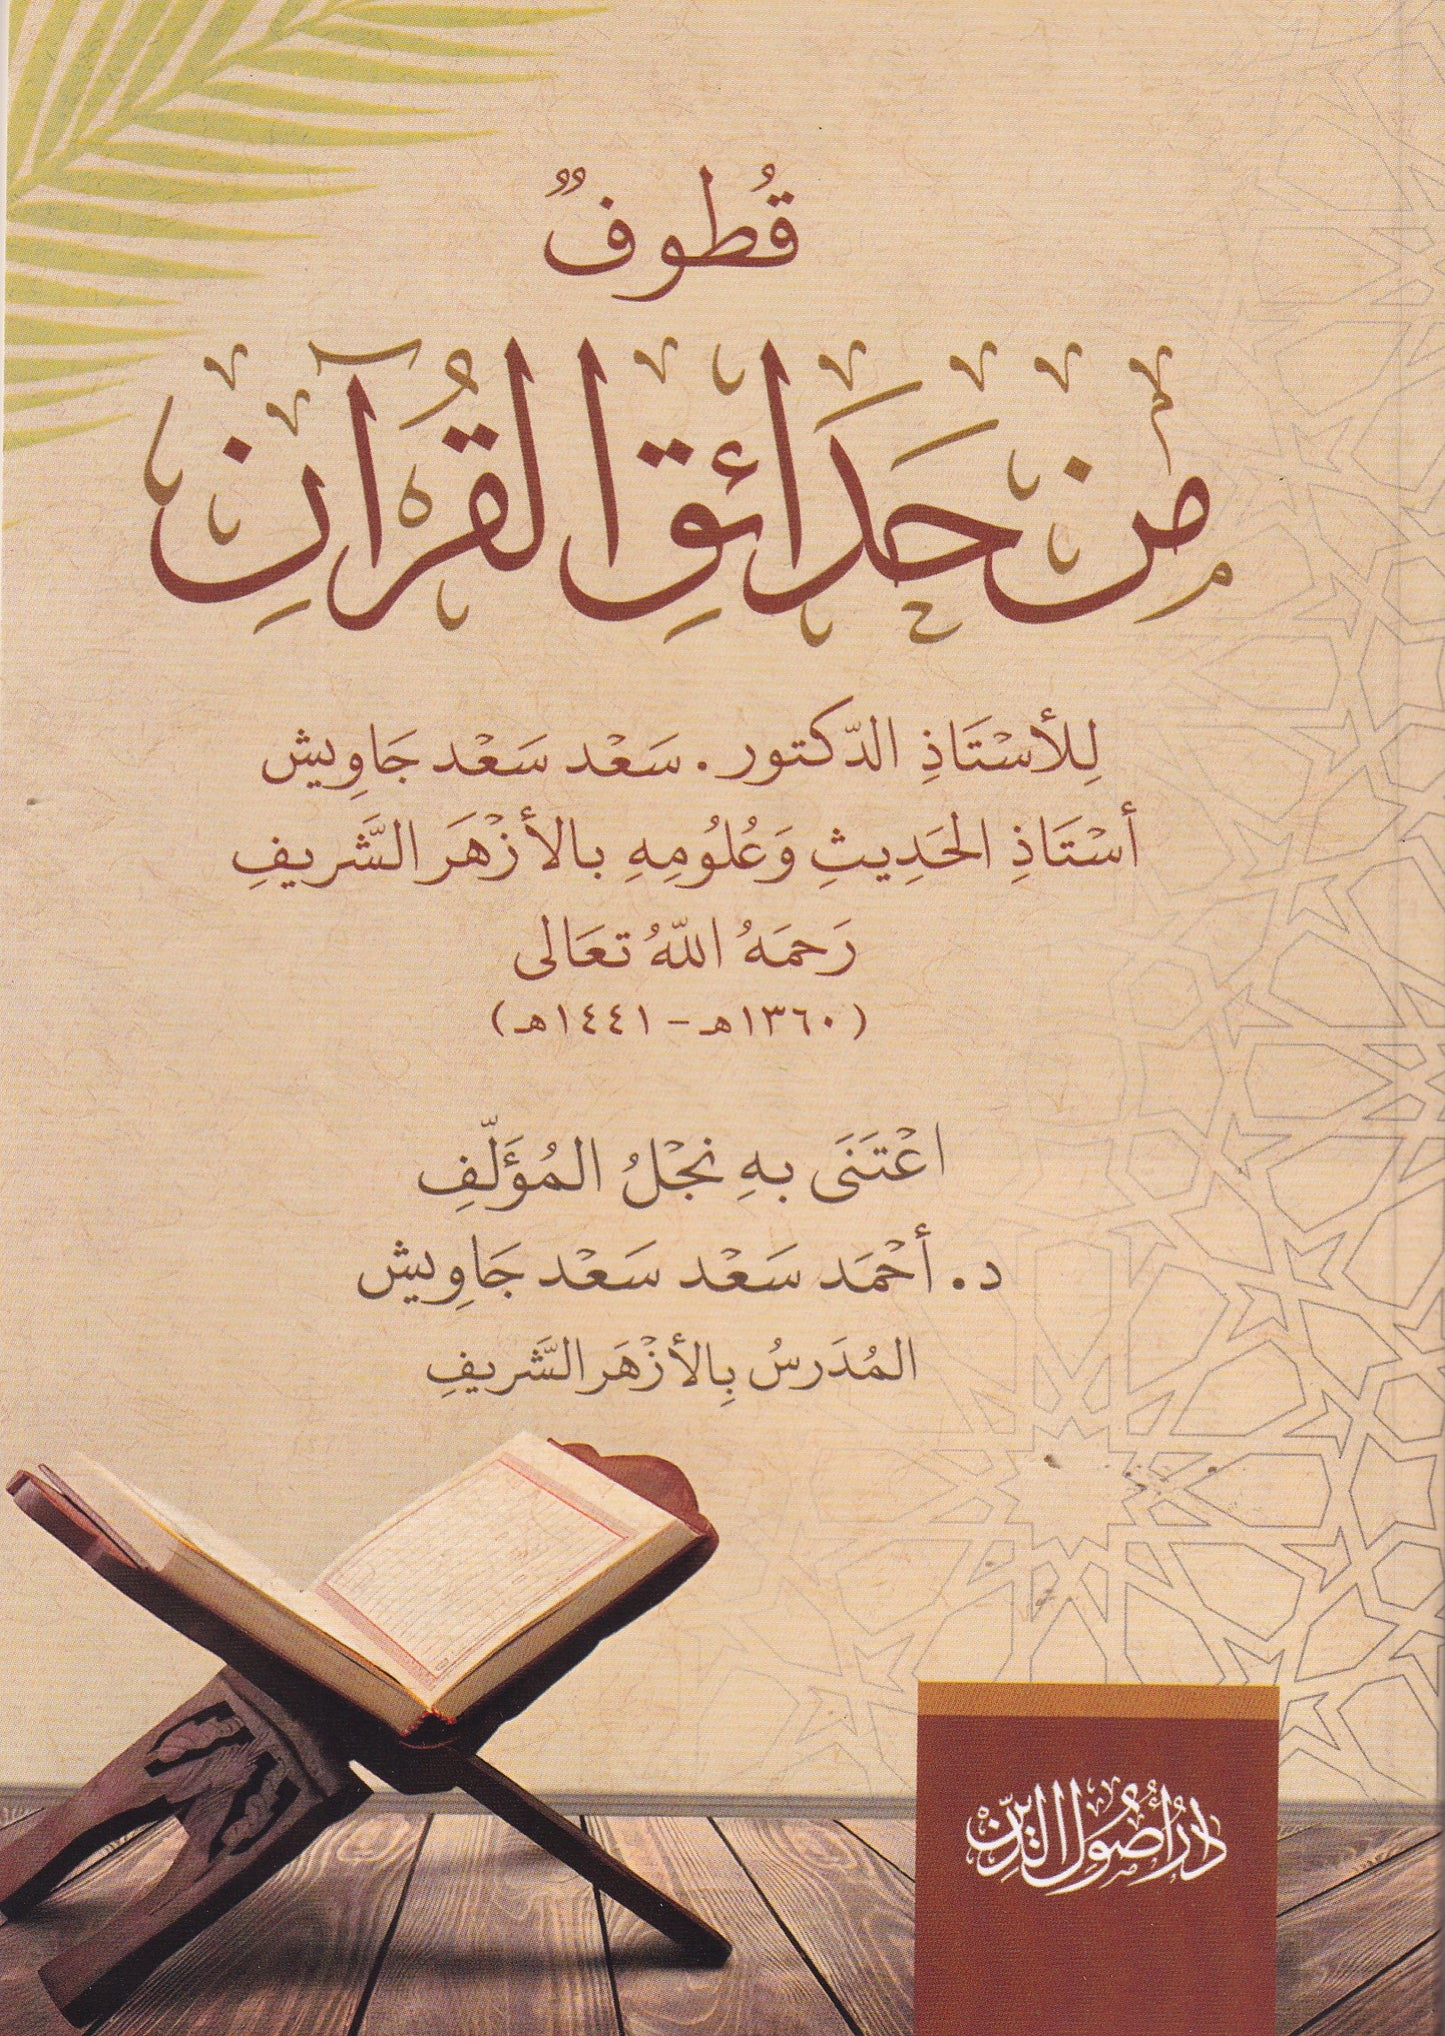 قُطوفٌ
مِن حَدَائقِ القُرآنِ
لِلأسْتَاذِ الدّكتور. سَعْد سَعْد جَاوِيش
أسْتَاذِ الحَدِيثِ وَعُلُومِهِ بالأزْهَر الشَّريفِ
رَحمَهُ اللّهُ تعَالى
(١٣٦٠هـ - ١٤٤١هـ)
اعْتَنَى بهِ نجْلُ المُؤَلّفِ
د. أحْمَد سَعْد سَعْد جَاوِيش
المُدَرسُ بِالأزْهَر الشَّريفِ
دار أصول الدين